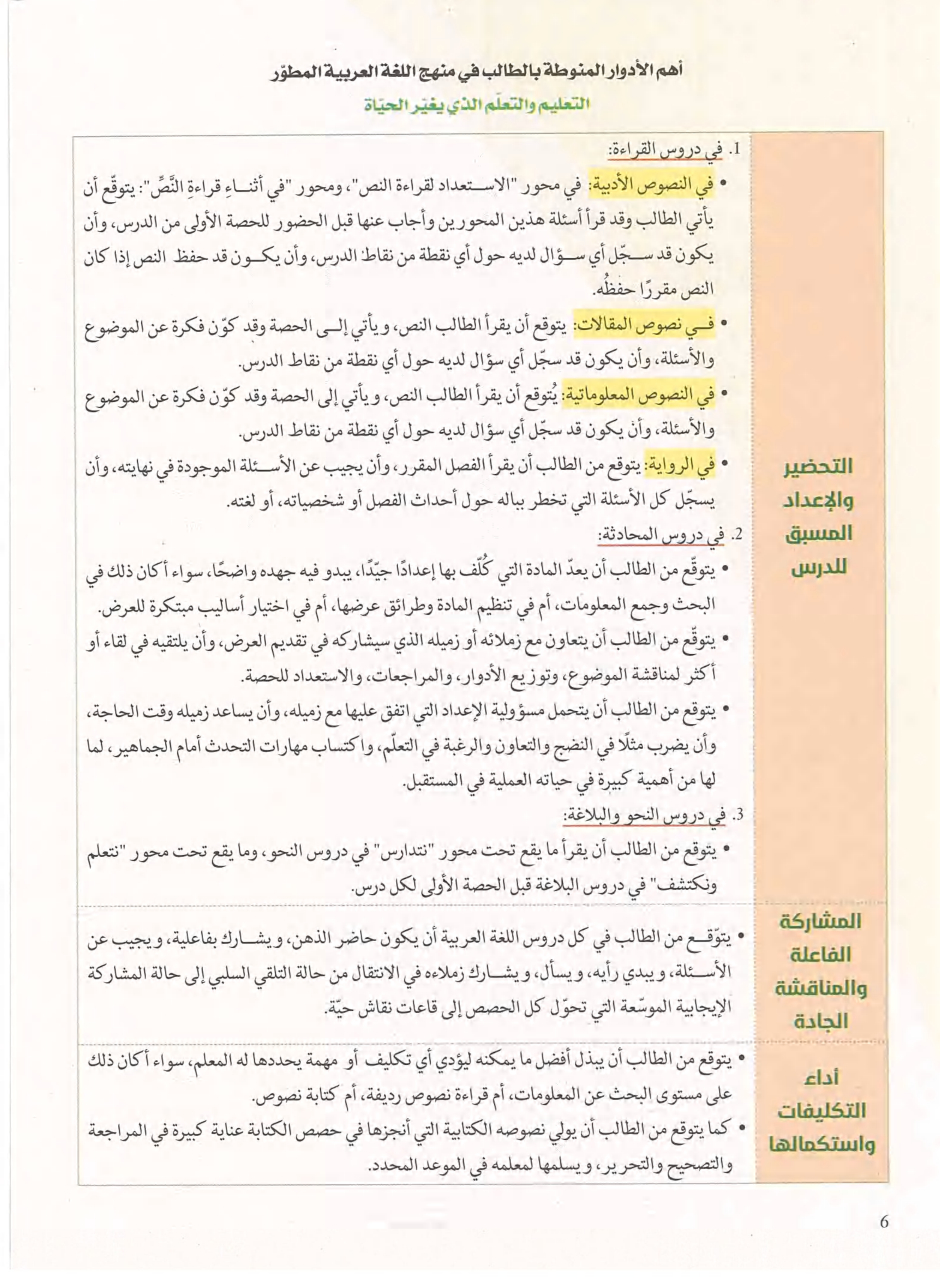 أهم الأدوار المنوطة بالطالب في منهج اللغة العربية المطوّر
التعليم والتعلّم الذي يغيّر الحيّاة
التحضير
والإعداد
المسبق
للدرس
1. في دروس القراءة:
• في النصوص الأدبية: في محور "الاستعداد لقراءة النص"، ومحور "في أثناءِ قراءةِ النَّصِّ": يتوقّع أن
يأتي الطالب وقد قرأ أسئلة هذين المحورين وأجاب عنها قبل الحضور للحصة الأولى من الدرس، وأن
يكون قد سجّل أي سؤال لديه حول أي نقطة من نقاط الدرس، وأن يكون قد حفظ النص إذا كان
النص مقررًا حفظُه.
• في نصوص المقالات: يتوقع أن يقرأ الطالب النص، ويأتي إلى الحصة وقد كوّن فكرة عن الموضوع
والأسئلة، وأن يكون قد سجّل أي سؤال لديه حول أي نقطة من نقاط الدرس.
• في النصوص المعلوماتية: يُتوقع أن يقرأ الطالب النص، ويأتي إلى الحصة وقد كوّن فكرة عن الموضوع
والأسئلة، وأن يكون قد سجّل أي سؤال لديه حول أي نقطة من نقاط الدرس.
• في الرواية: يتوقع من الطالب أن يقرأ الفصل المقرر، وأن يجيب عن الأسئلة الموجودة في نهايته، وأن
يسجّل كل الأسئلة التي تخطر بباله حول أحداث الفصل أو شخصياته، أو لغته.
2. في دروس المحادثة:
• يتوقّع من الطالب أن يعدّ المادة التي كُلّف بها إعدادًا جيّدًا، يبدو فيه جهده واضحًا، سواء أكان ذلك في
البحث وجمع المعلومات، أم في تنظيم المادة وطرائق عرضها، أم في اختيار أساليب مبتكرة للعرض.
• يتوقّع من الطالب أن يتعاون مع زملائه أو زميله الذي سيشاركه في تقديم العرض، وأن يلتقيه في لقاء أو
أكثر لمناقشة الموضوع، وتوزيع الأدوار، والمراجعات، والاستعداد للحصة.
• يتوقع من الطالب أن يتحمل مسؤولية الإعداد التي اتفق عليها مع زميله، وأن يساعد زميله وقت الحاجة،
وأن يضرب مثلًا في النضج والتعاون والرغبة في التعلّم، واكتساب مهارات التحدث أمام الجماهير، لما
لها من أهمية كبيرة في حياته العملية في المستقبل.
3. في دروس النحو والبلاغة:
• يتوقع من الطالب أن يقرأ ما يقع تحت محور "نتدارس" في دروس النحو، وما يقع تحت محور "نتعلم
ونكتشف" في دروس البلاغة قبل الحصة الأولى لكل درس.
المشاركة
الفاعلة
والمناقشة
الجادة
• يتوّقع من الطالب في كل دروس اللغة العربية أن يكون حاضر الذهن، ويشارك بفاعلية، ويجيب عن
الأسئلة، ويبدي رأيه، ويسأل، ويشارك زملاءه في الانتقال من حالة التلقي السلبي إلى حالة المشاركة
الإيجابية الموسّعة التي تحوّل كل الحصص إلى قاعات نقاش حيّة.
أداء
التكليفات
واستكمالها
• يتوقع من الطالب أن يبذل أفضل ما يمكنه ليؤدي أي تكليف أو مهمة يحددها له المعلم، سواء أكان ذلك
على مستوى البحث عن المعلومات، أم قراءة نصوص رديفة، أم كتابة نصوص.
• كما يتوقع من الطالب أن يولي نصوصه الكتابية التي أنجزها في حصص الكتابة عناية كبيرة في المراجعة
والتصحيح والتحرير، ويسلمها لمعلمه في الموعد المحدد.
6